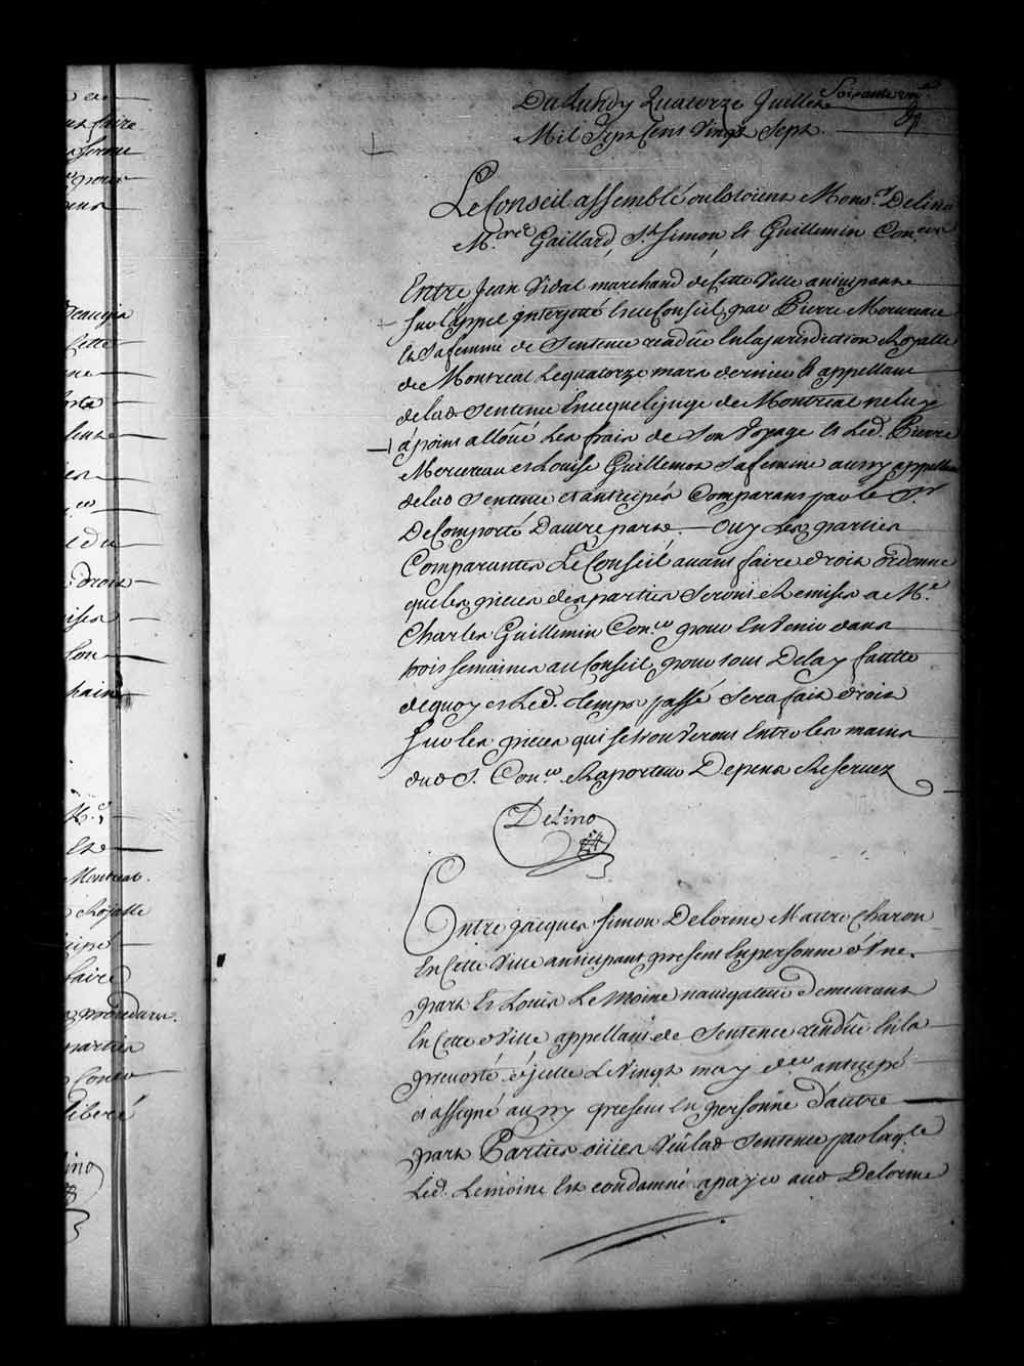 Du Lundy Quatorze Juillet
Mil Sept Cens Vingt Sept.
Le Conseil assemblé ou estoient Mons.r Delino
M.rs Gaillard, S.t Simon et Guillemin Con.ers
Entre Jean Vidal marchand de cette Ville anticipant
sur l'appel interjetté en ce Conseil par Pierre Mercereau
et sa femme de Sentence rendüe en la jurisdiction Royalle
de Montreal le quatorze mars dernier et appellant
de lad Sentence En ce que le juge de Montreal ne luy
a point alloüé les frais de Son Voyage et Led. Pierre
Mercereau et Louise Guillemot Sa femme aussy appellans
de lad Sentence et anticipés Comparans par le S.r
De Comporté D'autre part Ouy Les parties
Comparantes Le Conseil avant faire droit ordonne
que les pieces des parties Seront Remises a M.e
Charles Guillemin Con.er pour En Venir dans
trois semaines au Conseil pour tout Delay fautte
de quoy et Led. temps passé Sera fait droit
Sur les pieces qui se trouveront Entre les mains
dud S. Con.er Raporteur Depens Reservez
Delino
Entre Jacques Simon Delorme Maitre Charon
En Cette Ville anticipant present En personne d'Une
part Et Louis Le Moine navigateur Demeurant
En Cette d Ville appellant de Sentence rendüe En la
prevosté d'jcelle Le Vingt may d.er anticipé
et assigné aussy present En personne d'autre
part Parties oüies Veü lad Sentence par laq.le
Led. Lemoine Est condamné a payer aud Delorme